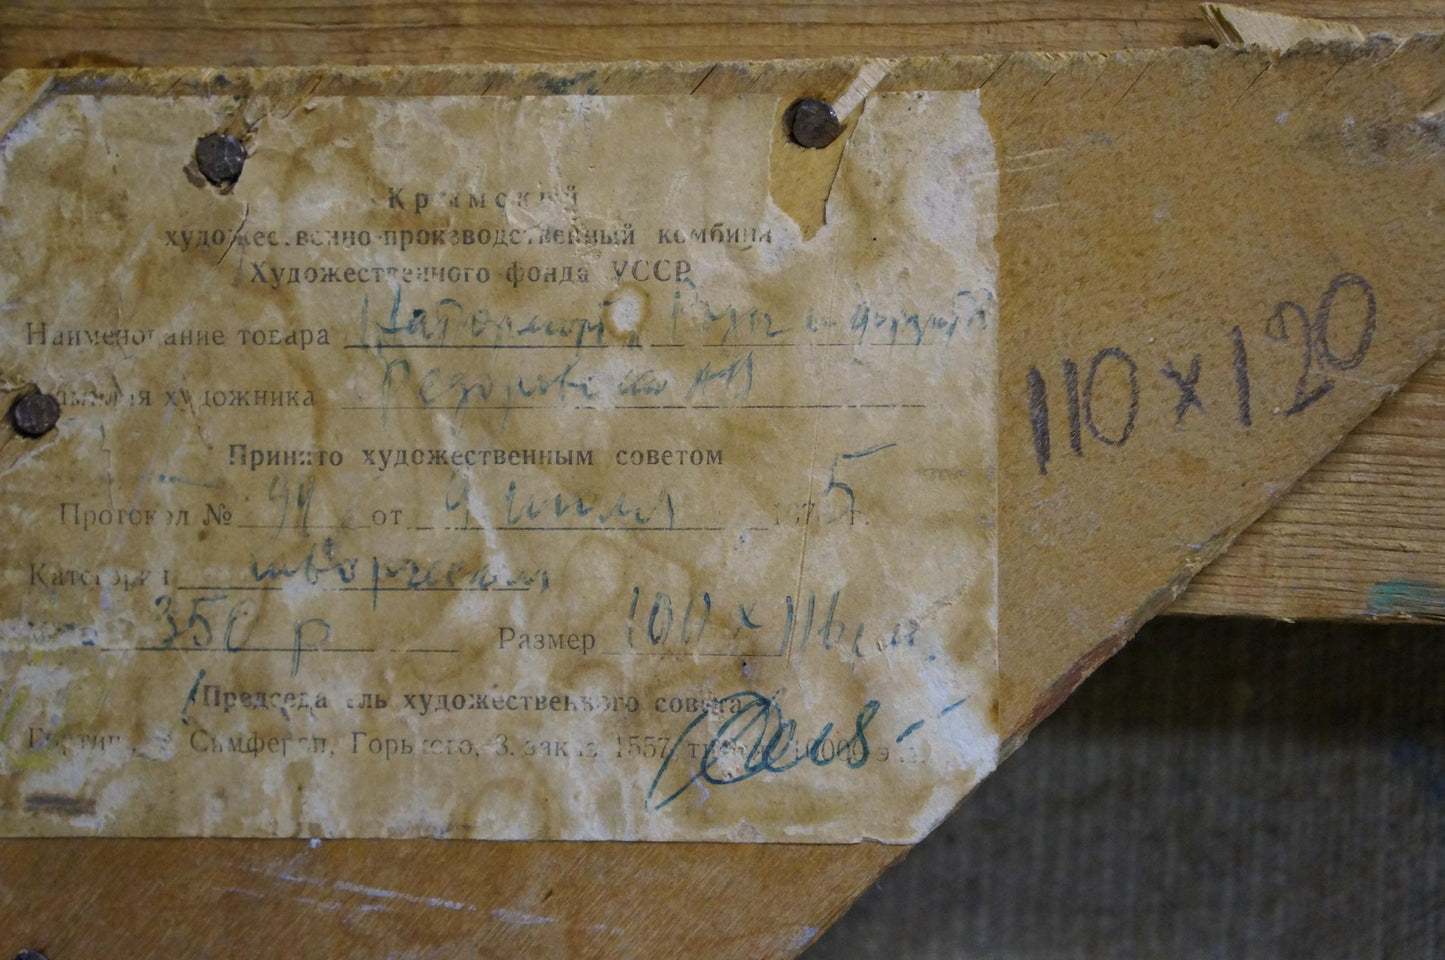 Крымский
художественно-производственный комбинат
Художественного фонда УССР
Наименование товара Натюрморт, Розы и фрукты
Фамилия художника
Принято художественным советом
Протокол № от июля 1975 г.
Категория творческая
350 р Размер 100 x 116 см.
Председатель художественного совета
Симфероп, Горького, 3. заказ 1557, тираж 10000 экз.
110 x 120